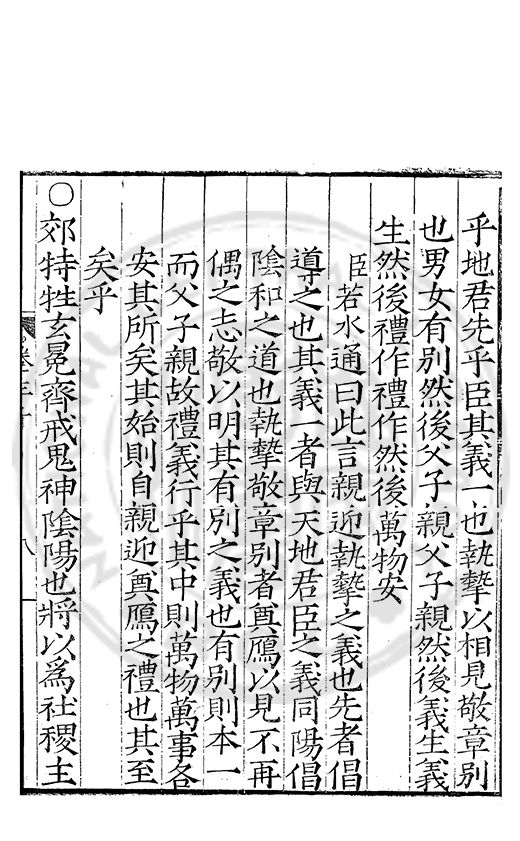 乎地君先乎臣其義一也執摯以相見敬章別
也男女有別然後父子親父子親然後義生義
生然後禮作禮作然後萬物安
臣若水通曰此言親迎執摯之義也先者倡
導之也其義一者與天地君臣之義同陽倡
陰和之道也執摯敬章別者奠鴈以見不再
偶之志敬以明其有別之義也有別則本一
而父子親故禮義行乎其中則萬物萬事各
安其所矣其始則自親迎奠鴈之禮也其至
矣乎
○郊特牲玄冕齊戒鬼神陰陽也將以爲社稷主